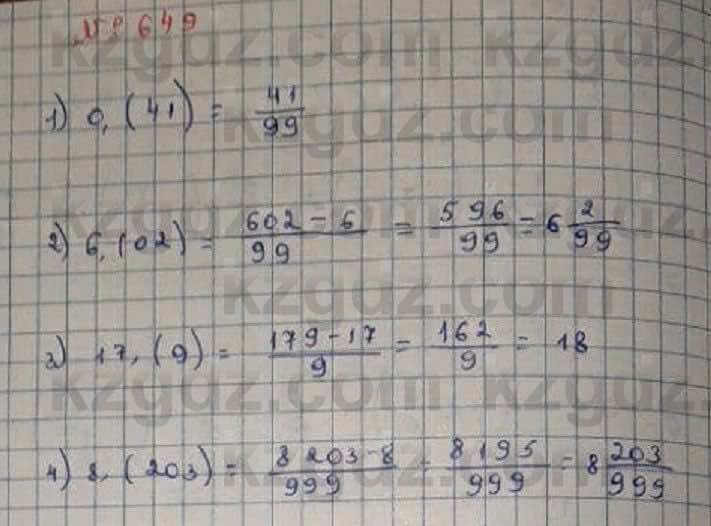 № 649
1) 0,(41) = 41/99
2) 6,(02) = (602-6)/99 = 596/99 = 6 2/99
3) 17,(9) = (179-17)/9 = 162/9 = 18
4) 8,(203) = (8203-8)/999 = 8195/999 = 8 203/999
kzgdz.com